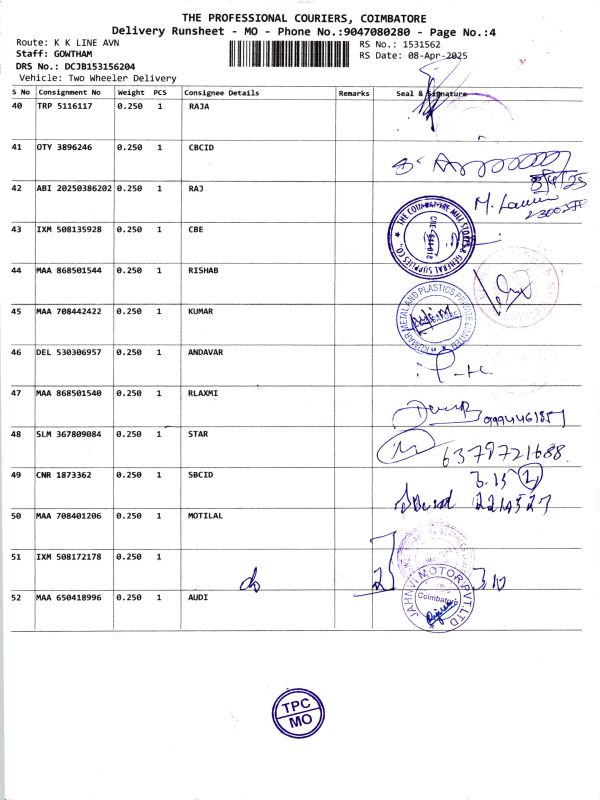 THE PROFESSIONAL COURIERS, COIMBATORE
Delivery Runsheet - MO - Phone No.:9047080280 - Page No.:4
Route: K K LINE AVN
RS No.: 1531562
Staff: GOWTHAM
RS Date: 08-Apr-2025
DRS No.: DCJB153156204
Vehicle: Two Wheeler Delivery
S No Consignment No Weight PCS Consignee Details Remarks Seal & Signature
40 TRP 5116117 0.250 1 RAJA
41 OTY 3896246 0.250 1 CBCID
8/4/25
42 ABI 20250386202 0.250 1 RAJ
43 IXM 508135928 0.250 1 CBE
44 MAA 868501544 0.250 1 RISHAB
45 MAA 708442422 0.250 1 KUMAR
KUMAR METAL AND PLASTICS PRIVATE LIMITED
46 DEL 530306957 0.250 1 ANDAVAR
47 MAA 868501540 0.250 1 RLAXMI
48 SLM 367809084 0.250 1 STAR
6379721688
49 CNR 1873362 0.250 1 SBCID
3.15
50 MAA 708401206 0.250 1 MOTILAL
51 IXM 508172178 0.250 1
do 2 3.10
52 MAA 650418996 0.250 1 AUDI
JAHNVI MOTOR PVT. LTD
Coimbatore
TPC
MO